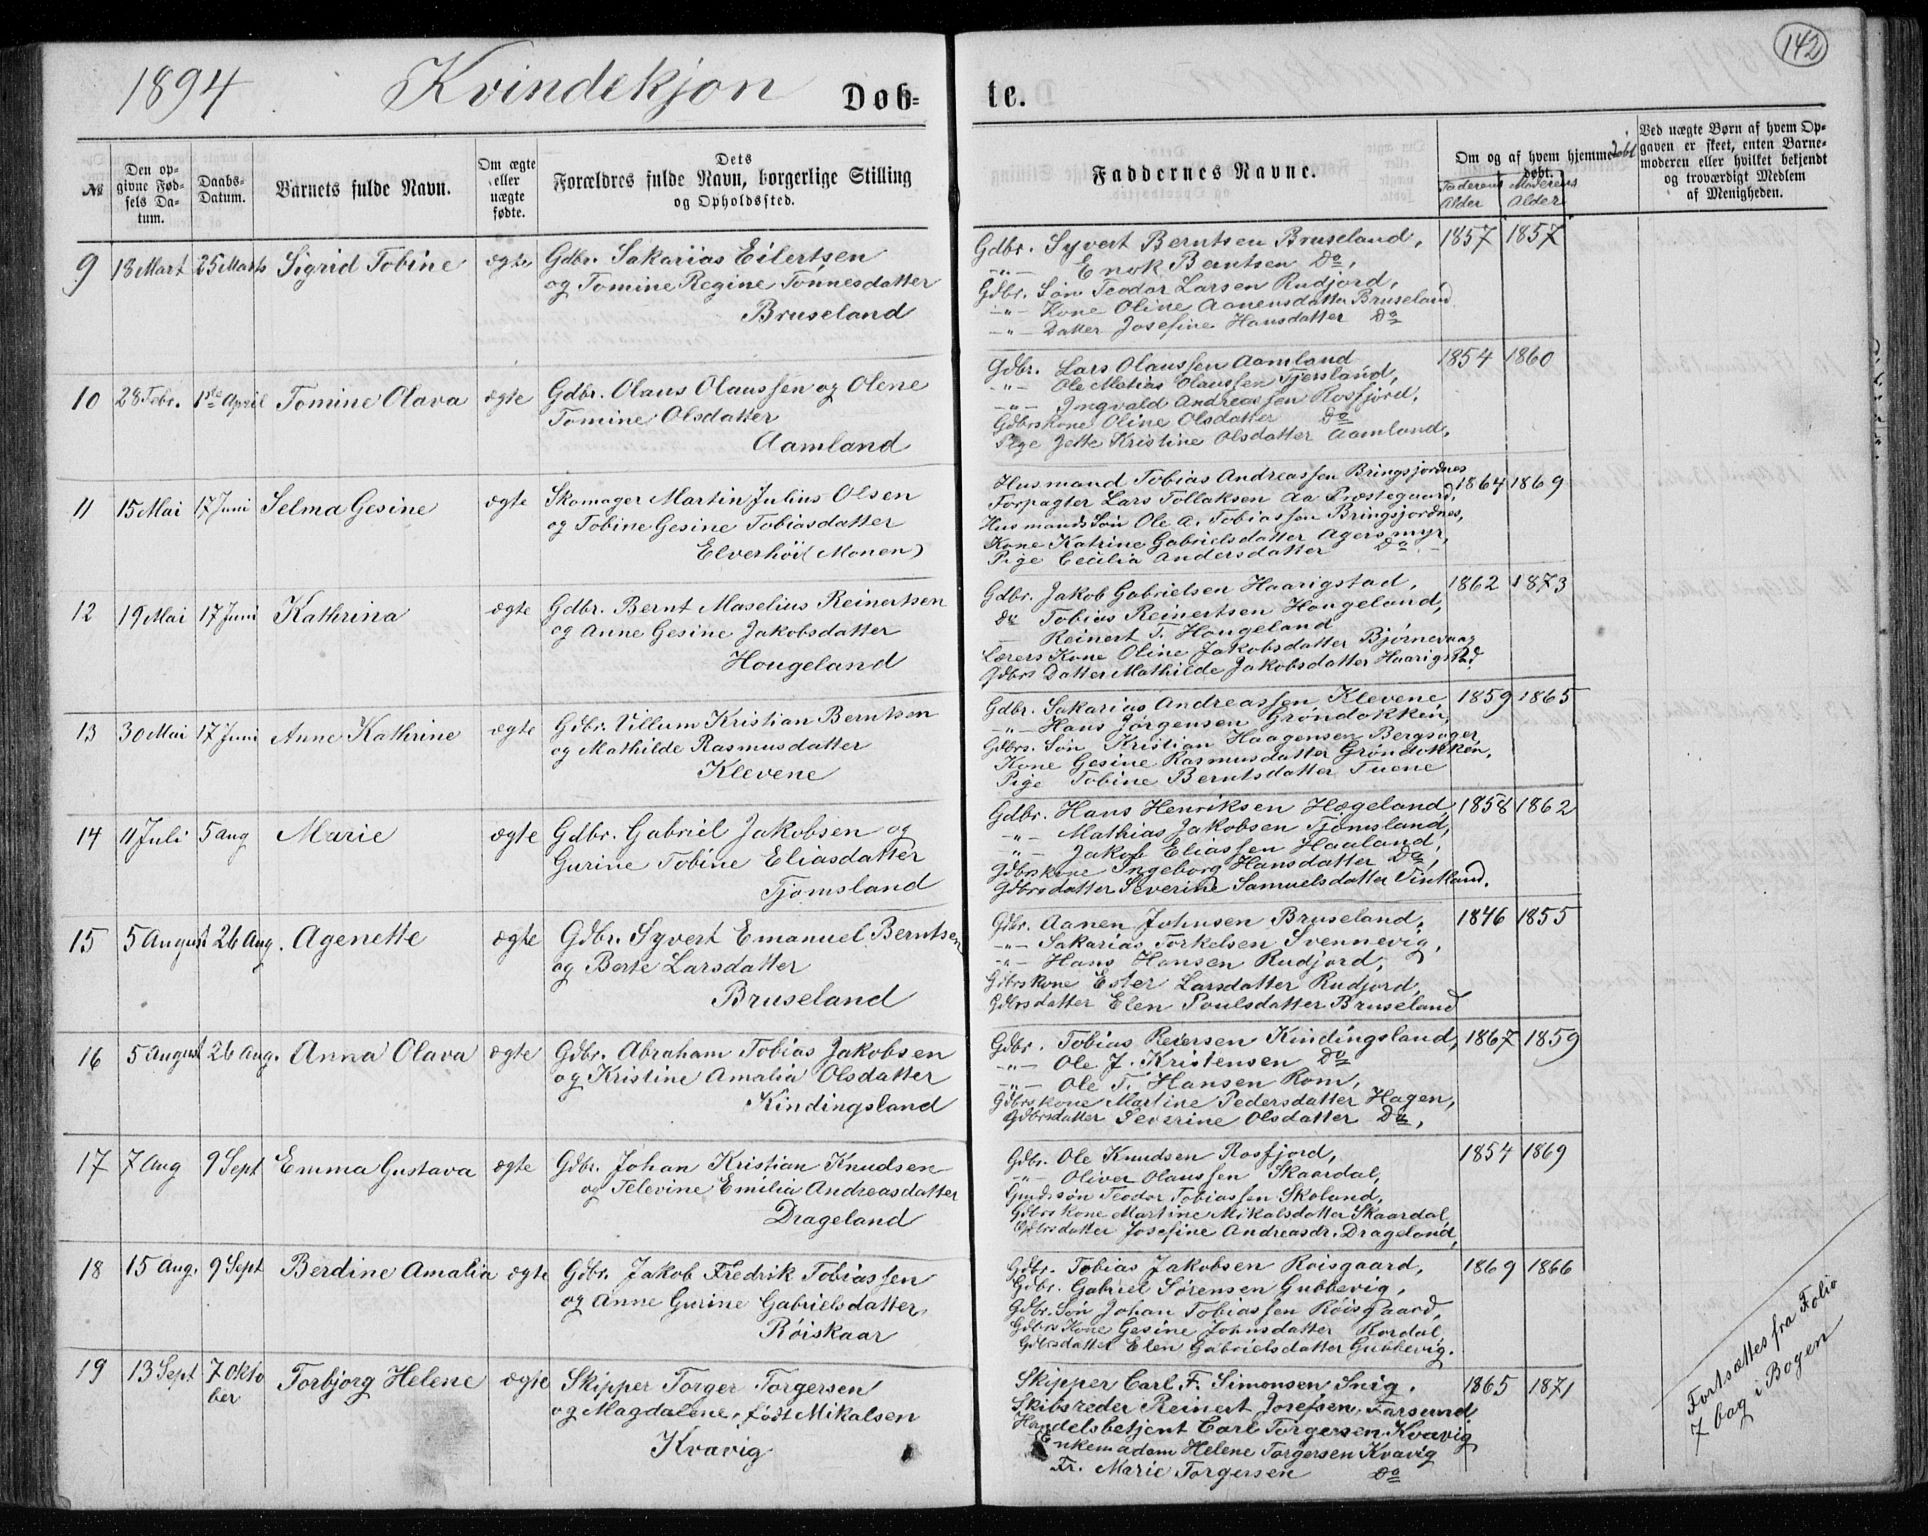 142
1894 Kvindekjøn Døb-te.
№
Den op-
givne Fød-
sels Da-
tum.
Daabs-
Datum.
Barnets fulde Navn.
Om ægte
eller
uægte
fødte.
Dets
Forældres fulde Navn, borgerlige Stilling
og Opholdssted.
Faddernes Navne.
Om og af hvem hjemme-
døbt.
døbt
Faderens
Alder
Moderens
Alder
Ved uægte Børn af hvem Op-
gaven er skeet, enten Barne-
moderen eller hvilket bekjendt
og troværdigt Medlem
af Menigheden.
9 18 Mart 25 Marts Sigrid Tobine ægte Gdbr. Sakarias Eilertsen
og Tomine Regine Tønnesdatter
Bruseland
Gdbr. Syvert Berntsen Bruseland, 1857 1857
-"- Enok Berntsen Do,
Gdbr. Søn Teodor Larsen Rudjord,
-"- Kone Oline Aanensdatter Bruseland
-"- Datter Josefine Hansdatter Do
10 28 Febr. 1ste April Tomine Olava ægte Gdbr. Olaus Olaussen og Olene
Tomine Olsdatter
Aamland
Gdbr. Lars Olaussen Aamland 1854 1860
-"- Ole Matias Olaussen Tjersland,
-"- Ingvald Andreassen Rosfjord,
Gdbrskone Oline Olsdatter Do
Pige Jette Kristine Olsdatter Aamland,
11 15 Mai 17 Juni Selma Gesine ægte Skomager Martin Julius Olsen
og Tobine Gesine Tobiasdatter
Elverhöi (Monen)
Husmand Tobias Andreassen Bringsjordnes
Forpagter Lars Tollaksen Aa Prestegaard, 1864 1869
Husmands Søn Ole A. Tobiassen Bringsjordnes,
Kone Katrine Gabrielsdatter Agersmyr,
Pige Cecilia Andersdatter Do
12 19 Mai 17 Juni Kathrina ægte Gdbr. Bernt Maselius Reinertsen
og Anne Gesine Jakobsdatter
Hougeland
Gdbr. Jakob Gabrielsen Haarigstad, 1862 1873
Do Tobias Reinertsen Hougeland,
— Reinert T. Hougeland
Lærers Kone Oline Jakobsdatter Bjørnevaag
Gdbrs Datter Mathilde Jakobsdatter Haarigstad
13 30 Mai 17 Juni Anne Kathrine ægte Gdbr. Villum Kristian Berntsen
og Mathilde Rasmusdatter
Klevene
Gdbr. Sakarias Andreassen Klevene, 1859 1865
-"- Hans Jørgensen Grøndokken,
Gdbrs. Søn Kristian Haagensen Bergsager,
Kone Gesine Rasmusdatter Grøndokken,
Pige Tobine Berntsdatter Tuene
14 11 Juli 5 Aug Marie ægte Gdbr. Gabriel Jakobsen og
Gurine Tobine Eliasdatter
Tjomsland
Gdbr. Hans Henriksen Hægeland 1858 1862
-"- Mathias Jakobsen Tjomsland,
"- Jakob Eliassen Haaland,
Gdbrskone Ingeborg Hansdatter Do,
Gdbrsdatter Severine Samuelsdatter Vintland.
15 5 August 26 Aug. Agenette ægte Gdbr. Syvert Emanuel Berntsen
og Berte Larsdatter
Bruseland
Gdbr. Aanen Johnsen Bruseland, 1846 1855
-"- Sakarias Torkelsen Svennevig,
-"- Hans Hansen Rudjord,
Gdbrskone Ester Larsdatter Rudjord,
Gdbrsdatter Elen Poulsdatter Bruseland
16 5 August 26 Aug. Anna Olava ægte Gdbr. Abraham Tobias Jakobsen
og Kristine Amalia Olsdatter
Kindingsland
Gdbr. Tobias Reiersen Kindingsland, 1867 1859
-"- Ole J. Kristensen Do
-"- Ole T. Hansen Rom,
Gdbrskone Martine Pedersdatter Hagen,
Gdbrsdatter Severine Olsdatter Do,
17 7 Aug 9 Sept Emma Gustava ægte Gdbr. Johan Kristian Knudsen
og Televine Emilia Andreasdatter
Drageland
Gdbr. Ole Knudsen Rosfjord, 1854 1869
-"- Oliver Olaussen Skaardal,
Teodor Tobiassen Skoland,
Gdbrskone Martine Mikalsdatter Skaardal,
Gdbrsdatter Josefine Andreasdr. Drageland,
18 15 Aug. 9 Sept Berdine Amalia ægte Gdbr. Jakob Fredrik Tobiassen
og Anne Gurine Gabrielsdatter
Røiskaar
Gdbr. Tobias Jakobsen Roisgaard, 1869 1866
Gdbr. Gabriel Sørensen Gubbevig,
Gdbr. Søn Johan Tobiassen Røisgaard,
Gdbrs Kone Gesine Johnsdatter Kordal,
Gdbrsdatter Elen Gabrielsdatter Gubbevig.
19 13 Sept 7 Okto
ber Torbjorg Helene ægte Skipper Torger Torgersen
og Magdalene, født Mikalsen
Kvavig
Skipper Carl F. Simonsen, Snig, 1865 1871
Skibsreder Reinert Josefsen, Farsund
Handelsbetjent Carl Torgersen Kvavig
Enkemadam Helene Torgersen Kvavig
Fr. Marie Torgersen Do
Fortsættes fra Folio
7 bag i Bogen